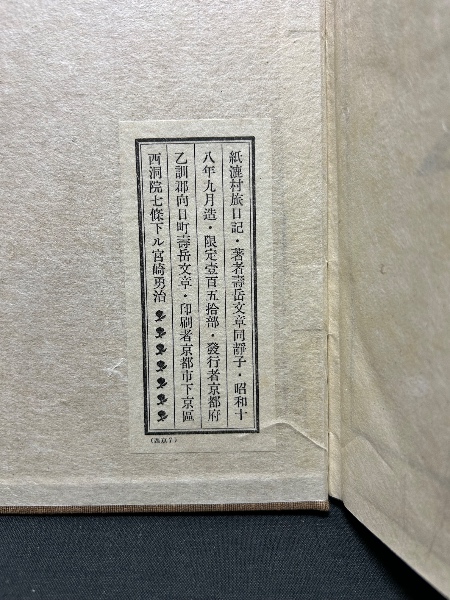 紙漉村旅日記・著者壽岳文章同靜子・昭和十
八年九月造・限定壹百五拾部・發行者京都府
乙訓郡向日町壽岳文章・印刷者京都市下京區
西洞院七條下ル宮崎勇治